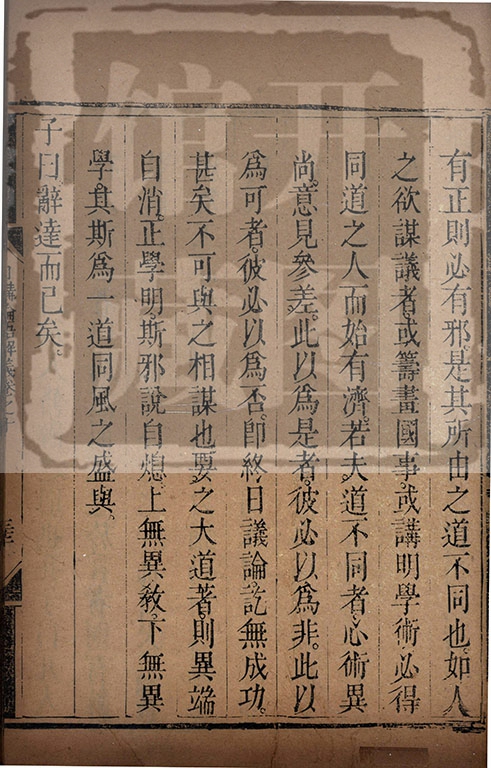 有正則必有邪是其所由之道不同也。如人
之欲謀議者。或籌畫國事。或講明學術。必得
同道之人而始有濟。若夫道不同者。心術異
尚。意見參差。此以爲是者。彼必以爲非。此以
爲可者。彼必以爲否。卽終日議論。訖無成功。
甚矣不可與之相謀也。要之大道著。則異端
自消。正學明。斯邪說自熄。上無異敎。下無異
學。其斯爲一道同風之盛與。
子曰辭達而已矣。